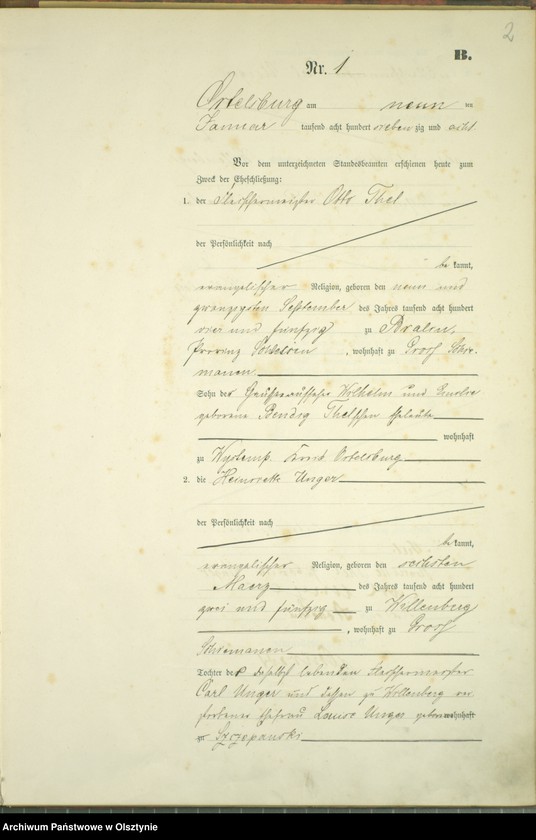 2
B.
Nr. 1
Ortelsburg am neun ten
Januar tausend acht hundert sieben zig und acht
Vor dem unterzeichneten Standesbeamten erschienen heute zum
Zweck der Eheschließung:
1. der Fleischermeister Otto Thel
der Persönlichkeit nach
be kannt,
evangelischer Religion, geboren den neun und
zwanzigsten September des Jahres tausend acht hundert
vier und fünfzig zu
Provinz , wohnhaft zu Groß Schie-
manen
Sohn der Wilhelm und
geborene Bendig Thelschen Eheleute
wohnhaft
zu Kreis Ortelsburg
2. die Henriette Unger
der Persönlichkeit nach
be kannt,
evangelischer Religion, geboren den sechsten
Maerz des Jahres tausend acht hundert
zwei und fünfzig zu Willenberg
, wohnhaft zu Groß
Schiemanen
Tochter des daselbst lebenden Fleischermeister
Carl Unger und dessen zu Willenberg ver
storbene Ehefrau Louise Unger geborene wohnhaft
zu Szczepanski
Archiwum Państwowe w Olsztynie